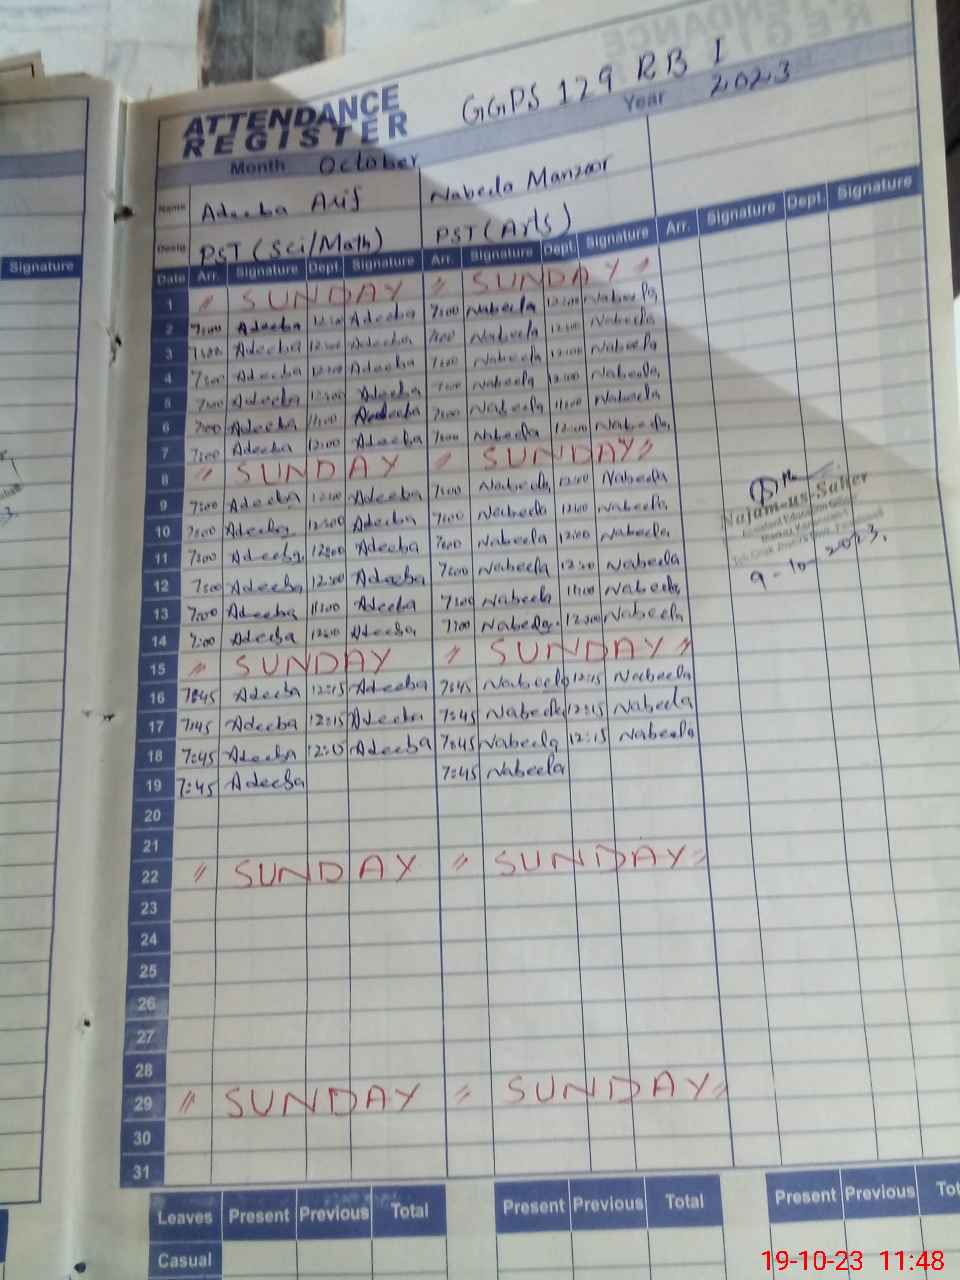 Signature
ATTENDANCE
REGISTER
GGPS 129 RB I
Month October
Year 2023
Name Adeeba Arif Nabeela Manzoor
Desig PST (Sci/Math) PST (Arts)
Date Arr. Signature Dept Signature Arr. Signature Dept Signature Arr. Signature Dept. Signature
1 〃 SUNDAY 〃 SUNDAY 〃
2 7:00 Adeeba 12:00 Adeeba 7:00 Nabeela 12:00 Nabeela
3 7:00 Adeeba 12:00 Adeeba 7:00 Nabeela 12:00 Nabeela
4 7:00 Adeeba 12:00 Adeeba 7:00 Nabeela 12:00 Nabeela
5 7:00 Adeeba 12:00 Adeeba 7:00 Nabeela 12:00 Nabeela
6 7:00 Adeeba 11:00 Adeeba 7:00 Nabeela 11:00 Nabeela
7 7:00 Adeeba 12:00 Adeeba 7:00 Nabeela 12:00 Nabeela
8 〃 SUNDAY 〃 SUNDAY 〃
9 7:00 Adeeba 12:00 Adeeba 7:00 Nabeela 12:00 Nabeela
10 7:00 Adeeba 12:00 Adeeba 7:00 Nabeela 12:00 Nabeela
11 7:00 Adeeba 12:00 Adeeba 7:00 Nabeela 12:00 Nabeela
12 7:00 Adeeba 12:00 Adeeba 7:00 Nabeela 12:00 Nabeela
13 7:00 Adeeba 11:00 Adeeba 7:00 Nabeela 11:00 Nabeela
14 7:00 Adeeba 12:00 Adeeba 7:00 Nabeela 12:00 Nabeela
15 〃 SUNDAY 〃 SUNDAY 〃
16 7:45 Adeeba 12:15 Adeeba 7:45 Nabeela 12:15 Nabeela
17 7:45 Adeeba 12:15 Adeeba 7:45 Nabeela 12:15 Nabeela
18 7:45 Adeeba 12:15 Adeeba 7:45 Nabeela 12:15 Nabeela
19 7:45 Adeeba 7:45 Nabeela
20
21
22 〃 SUNDAY 〃 SUNDAY 〃
23
24
25
26
27
28
29 〃 SUNDAY 〃 SUNDAY 〃
30
31
Najam-us-Saher
9-10-2023
Leaves Present Previous Total Present Previous Total Present Previous
Casual
19-10-23 11:48